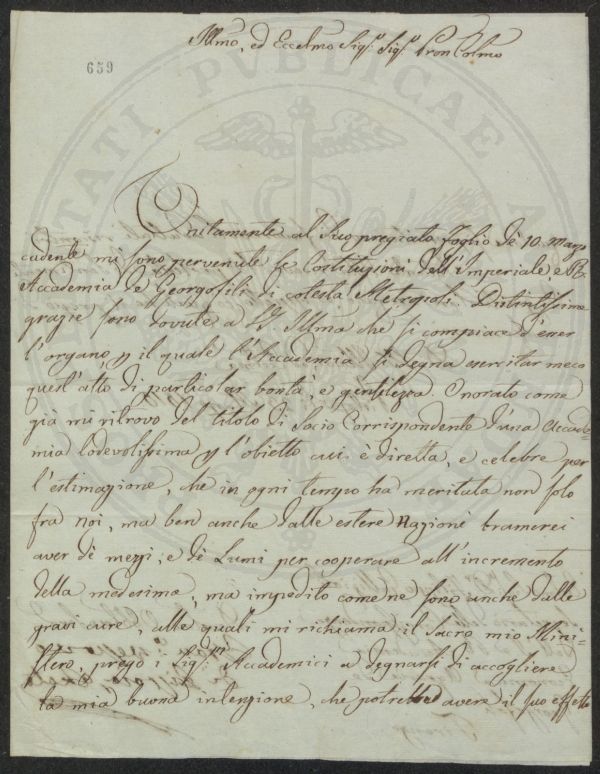 Illmo, ed Eccelmo Sigr. Sigr. Pron Colmo
659
Unitamente al suo pregiato foglio dè 10. Margo
cadente mi sono pervenute le Costituzioni dell'Imperiale, e R.
Accademia de Georgofili di cotesta Metropoli. Distintissime
grazie sono dovute a Illma che si compiace d'esser
l'organo, p il quale l'Accademia si degna esercitar meco
quest'atto di particolar bontà, e gentilezza. Onorato come
già mi ritrovo del titolo di Socio Corrispondente d'una Accade=
mia lodevolissima p l'obietto cui è diretta, e celebre per
l'estimazione, che in ogni tempo ha meritata non solo
fra noi, ma ben anche dalle estere Nazioni bramerei
aver dè mezzi, e dè Lumi per cooperare all'incremento
della medesima, ma impedito come ne sono anche dalle
gravi cure, alle quali mi richiama il Sacro mio Mini=
stero, prego i Sigri. Accademici a degnarsi di accogliere
la mia buona intenzione, che potrebbe avere il suo effetto
PUBLICAE